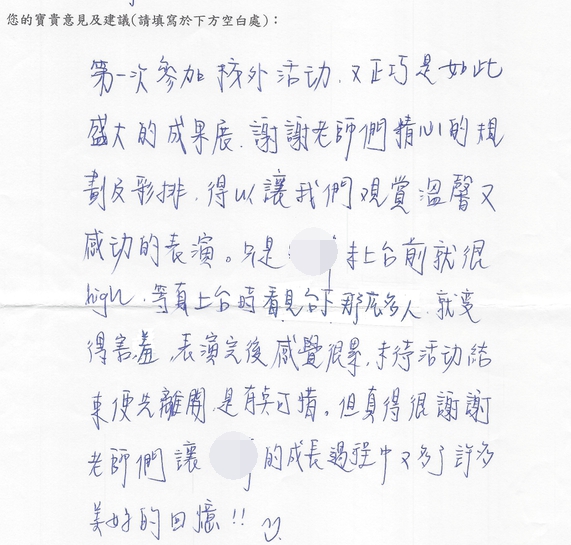 您的寶貴意見及建議(請填寫於下方空白處)：
第一次參加校外活動，又正巧是如此
盛大的成果展，謝謝老師們精心的規
劃及彩排，得以讓我們觀賞溫馨又
感动的表演。只是 未上台前就很
high，等真上台時看見台下那麼多人，就變
得害羞，表演完後感覺很累，未待活动結
束便先離開，是有点可惜。但真得很謝謝
老師們讓 的成長過程中又多了許多
美好的回憶!!